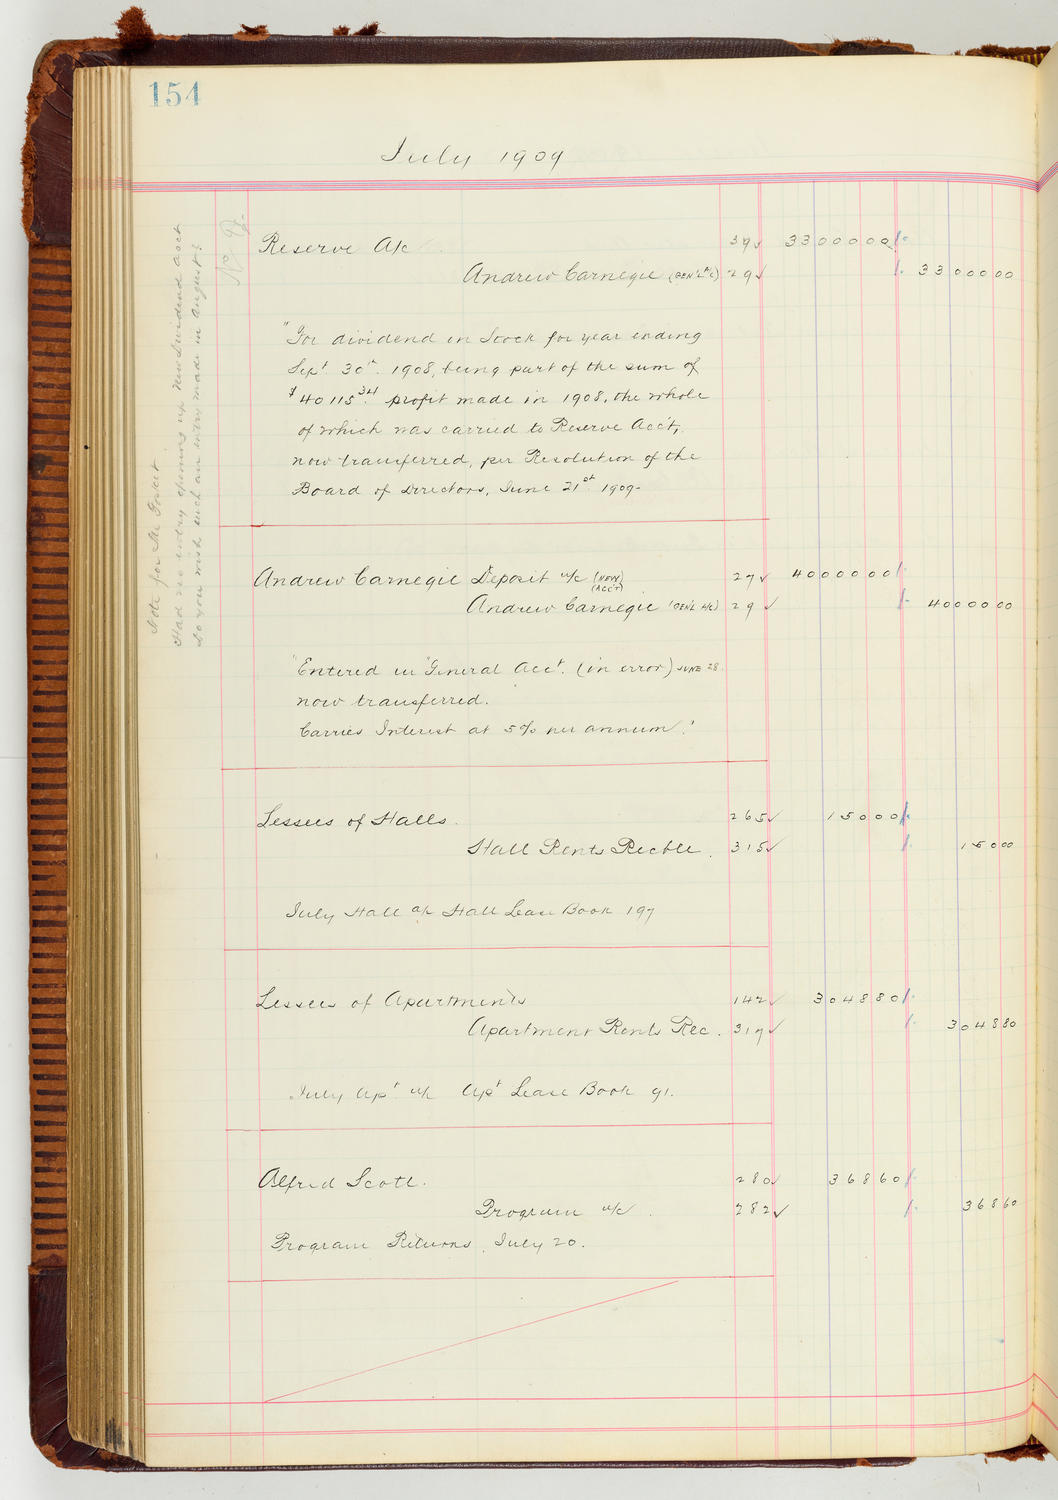 154
July 1909
Reserve A/c 39 3300000
Andrew Carnegie (GEN'L A/C) 29 3300000
"For dividend in Stock for year ending
Sept. 30th. 1908, being part of the sum of
$40115.34 profit made in 1908, the whole
of which was carried to Reserve Acc't,
now transferred, per Resolution of the
Board of Directors, June 21st 1909-
Andrew Carnegie Deposit a/c (NEW ACC'T) 27 4000000
Andrew Carnegie (GEN'L A/C) 29 4000000
"Entered in "General Acct. (in error) JUNE 28.
now transferred.
Carries Interest at 5% per annum."
Lessees of Halls. 265 15000
Hall Rents Rec'ble. 315 15000
July Hall a/c Hall Lease Book 197
Lessees of Apartments 142 304880
Apartment Rents Rec. 317 304880
July Apt a/c Apt Lease Book 91.
Alfred Scott. 280 36860
Program a/c. 282 36860
Program Returns, July 20.
Note for Mr
Had no entry opening up new Dividend acct
Do you wish such an entry made in August?